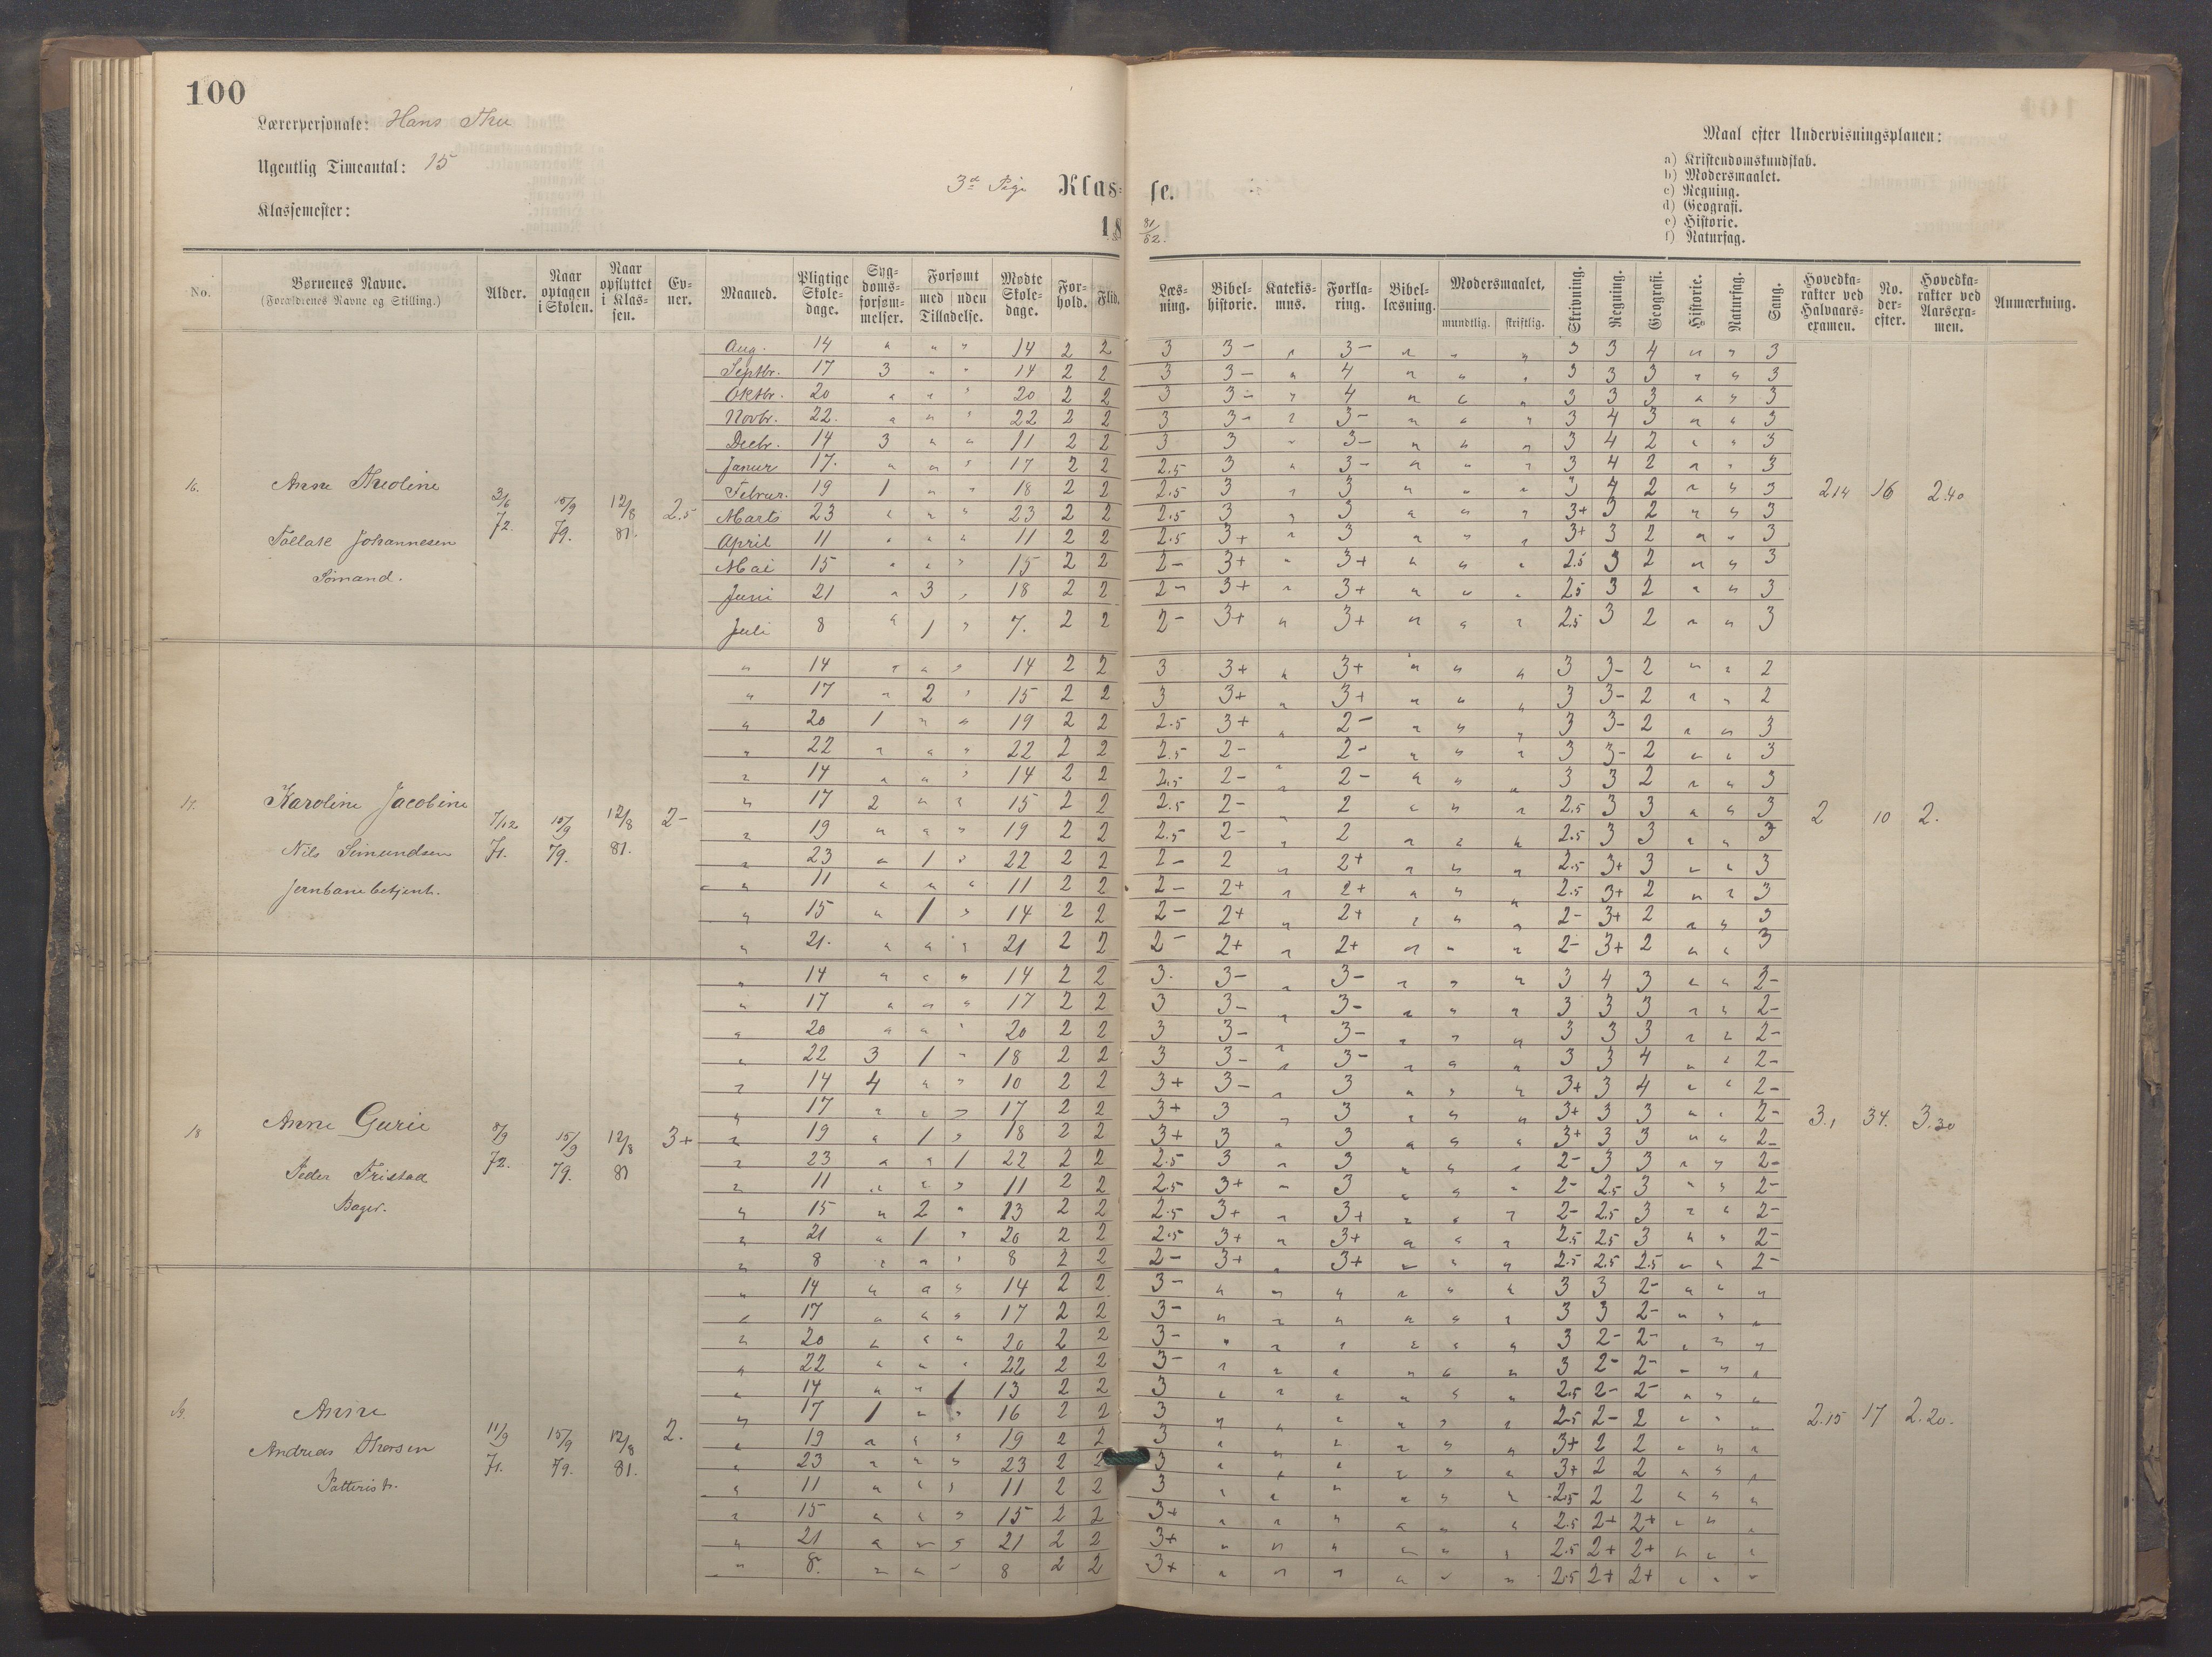 100
Lærerpersonale: Hans Thu
Ugentlig Timeantal: 15
Klassemester:
3die Pige Klasse.
1881/82.
Maal efter Undervisningsplanen:
a) Kristendomskundskab.
b) Modersmaalet.
c) Regning.
d) Geografi.
e) Historie.
f) Naturfag.
No. Børnenes Navne. (Forældrenes Navne og Stilling.) Alder. Naar optagen i Skolen. Naar opflyttet i Klassen. Evner. Maaned. Pligtige Skoledage. Sygdomsforsømmelser. Forsømt med uden Tilladelse. Mødte Skoledage. Forhold. Flid. Læsning. Bibelhistorie. Katekismus. Forklaring. Bibellæsning. Modersmaalet, mundtlig. skriftlig. Skrivning. Regning. Geografi. Historie. Naturfag. Sang. Hovedkarakter ved Halvaarsexamen. No. derefter. Hovedkarakter ved Aarsexamen. Anmærkning.
Aug. 14 " " " 14 2 2 3 3- " 3- " " " 3 3 4 " " 3
Septbr. 17 3 " " 14 2 2 3 3- " 4 " " " 3 3 3 " " 3
Oktbr. 20 " " " 20 2 2 3 3- " 4 " " " 3 3 3 " " 3
Novbr. 22. " " " 22 2 2 3 3- " 3- " " " 3 4 3 " " 3
Decbr. 14 3 " " 11 2 2 3 3 " 3- " " " 3 4 2 " " 3
Janur 17. " " " 17 2 2 2.5 3 " 3- " " " 3 4 2 " " 3
16. Anne Theoline 3/6 72. 15/9 79. 12/8 81. 2.5 Februr. 19 1 " " 18 2 2 2.5 3 " 3 " " " 3 4 2 " " 3 2.14 16 2.40
Marts 23 " " " 23 2 2 2.5 3 " 3 " " " 3+ 3 2 " " 3
Tollak Johannesen April 11 " " " 11 2 2 2.5 3+ " 3 " " " 3+ 3 2 " " 3
Sømand. Mai 15 " " " 15 2 2 2- 3+ " 3+ " " " 2.5 3 2 " " 3
Juni 21 " 3 " 18 2 2 2- 3+ " 3+ " " " 2.5 3 2 " " 3
Juli 8 " 1 " 7. 2 2 2- 3+ " 3+ " " " 2.5 3 2 " " 3
" 14 " " " 14 2 2 3 3+ " 3+ " " " 3 3- 2 " " 2
" 17 " 2 " 15 2 2 3 3+ " 3+ " " " 3 3- 2 " " 2
" 20 1 " " 19 2 2 2.5 3+ " 2- " " " 3 3- 2 " " 3
" 22 " " " 22 2 2 2.5 2- " 2- " " " 3 3- 2 " " 3
" 14 " " " 14 2 2 2.5 2- " 2- " " " 3 3 2 " " 3
17. Karoline Jacobine 7/12 71. 15/9 79. 12/8 81. 2- " 17 2 " " 15 2 2 2.5 2- " 2 " " " 2.5 3 3 " " 3 2 10 2.
" 19 " " " 19 2 2 2.5 2- " 2 " " " 2.5 3 3 " " 3
Nils Simundsen " 23 " 1 " 22 2 2 2- 2 " 2+ " " " 2.5 3+ 3 " " 3
Jernbanebetjent. " 11 " " " 11 2 2 2- 2+ " 2+ " " " 2.5 3+ 2 " " 3
" 15 " 1 " 14 2 2 2- 2+ " 2+ " " " 2- 3+ 2 " " 3
" 21. " " " 21 2 2 2- 2+ " 2+ " " " 2- 3+ 2 " " 3
" 14 " " " 14 2 2 3. 3- " 3- " " " 3 4 3 " " 2-
" 17 " " " 17 2 2 3 3- " 3- " " " 3 3 3 " " 2-
" 20 " " " 20 2 2 3 3- " 3- " " " 3 3 3 " " 2-
" 22 3 1 " 18 2 2 3 3- " 3- " " " 3 3 4 " " 2-
" 14 4 " " 10 2 2 3+ 3- " 3 " " " 3+ 3 4 " " 2-
18 Anne Gurie 8/9 72. 15/9 79. 12/8 81 3+ " 17 " " " 17 2 2 3+ 3 " 3 " " " 3+ 3 3 " " 2- 3.1 34. 3.30
" 19 " 1 " 18 2 2 3+ 3 " 3 " " " 3+ 3 3 " " 2-
Peder Tristad " 23 " " 1 22 2 2 2.5 3 " 3 " " " 2- 3 3 " " 2-
" 11 " " " 11 2 2 2.5 3+ " 3 " " " 2- 2.5 3 " " 2-
Bager. " 15 " 2 " 13 2 2 2.5 3+ " 3+ " " " 2- 2.5 3 " " 2-
" 21 " 1 " 20 2 2 2.5 3+ " 3+ " " " 2.5 2.5 3 " " 2-
" 8 " " " 8 2 2 2- 3+ " 3+ " " " 2.5 2.5 2.5 " " 2-
" 14 " " " 14 2 2 3- " " " " " " 3 3 2- " " "
" 17 " " " 17 2 2 3- " " " " " " 3 3 2- " " "
" 20 " " " 20 2 2 3- " " " " " " 3 2- 2- " " "
" 22 " " " 22 2 2 3- " " " " " " 3 2- 2- " " "
" 14 " " 1 13 2 2 3 " " " " " " 2.5 2- 2- " " "
19. Anne 11/9 71. 15/9 79. 12/8 81. 2. " 17 1 " " 16 2 2 3 " " " " " " 2.5 2- 2 " " " 2.15 17 2.20.
Andreas Thorsen " 19 " " " 19 2 2 3 " " " " " " 3+ 2 2 " " "
" 23 " " " 23 2 2 3 " " " " " " 3+ 2 2 " " "
" 11 " " " 11 2 2 3 " " " " " " 2.5 2 2 " " "
" 15 " " " 15 2 2 3+ " " " " " " 2.5 2+ 2+ " " "
" 21 " " " 21 2 2 3+ " " " " " " 2.5 2+ 2+ " " "
" 8. " " " 8 2 2 3+ " " " " " " 2.5 2+ 2+ " " "